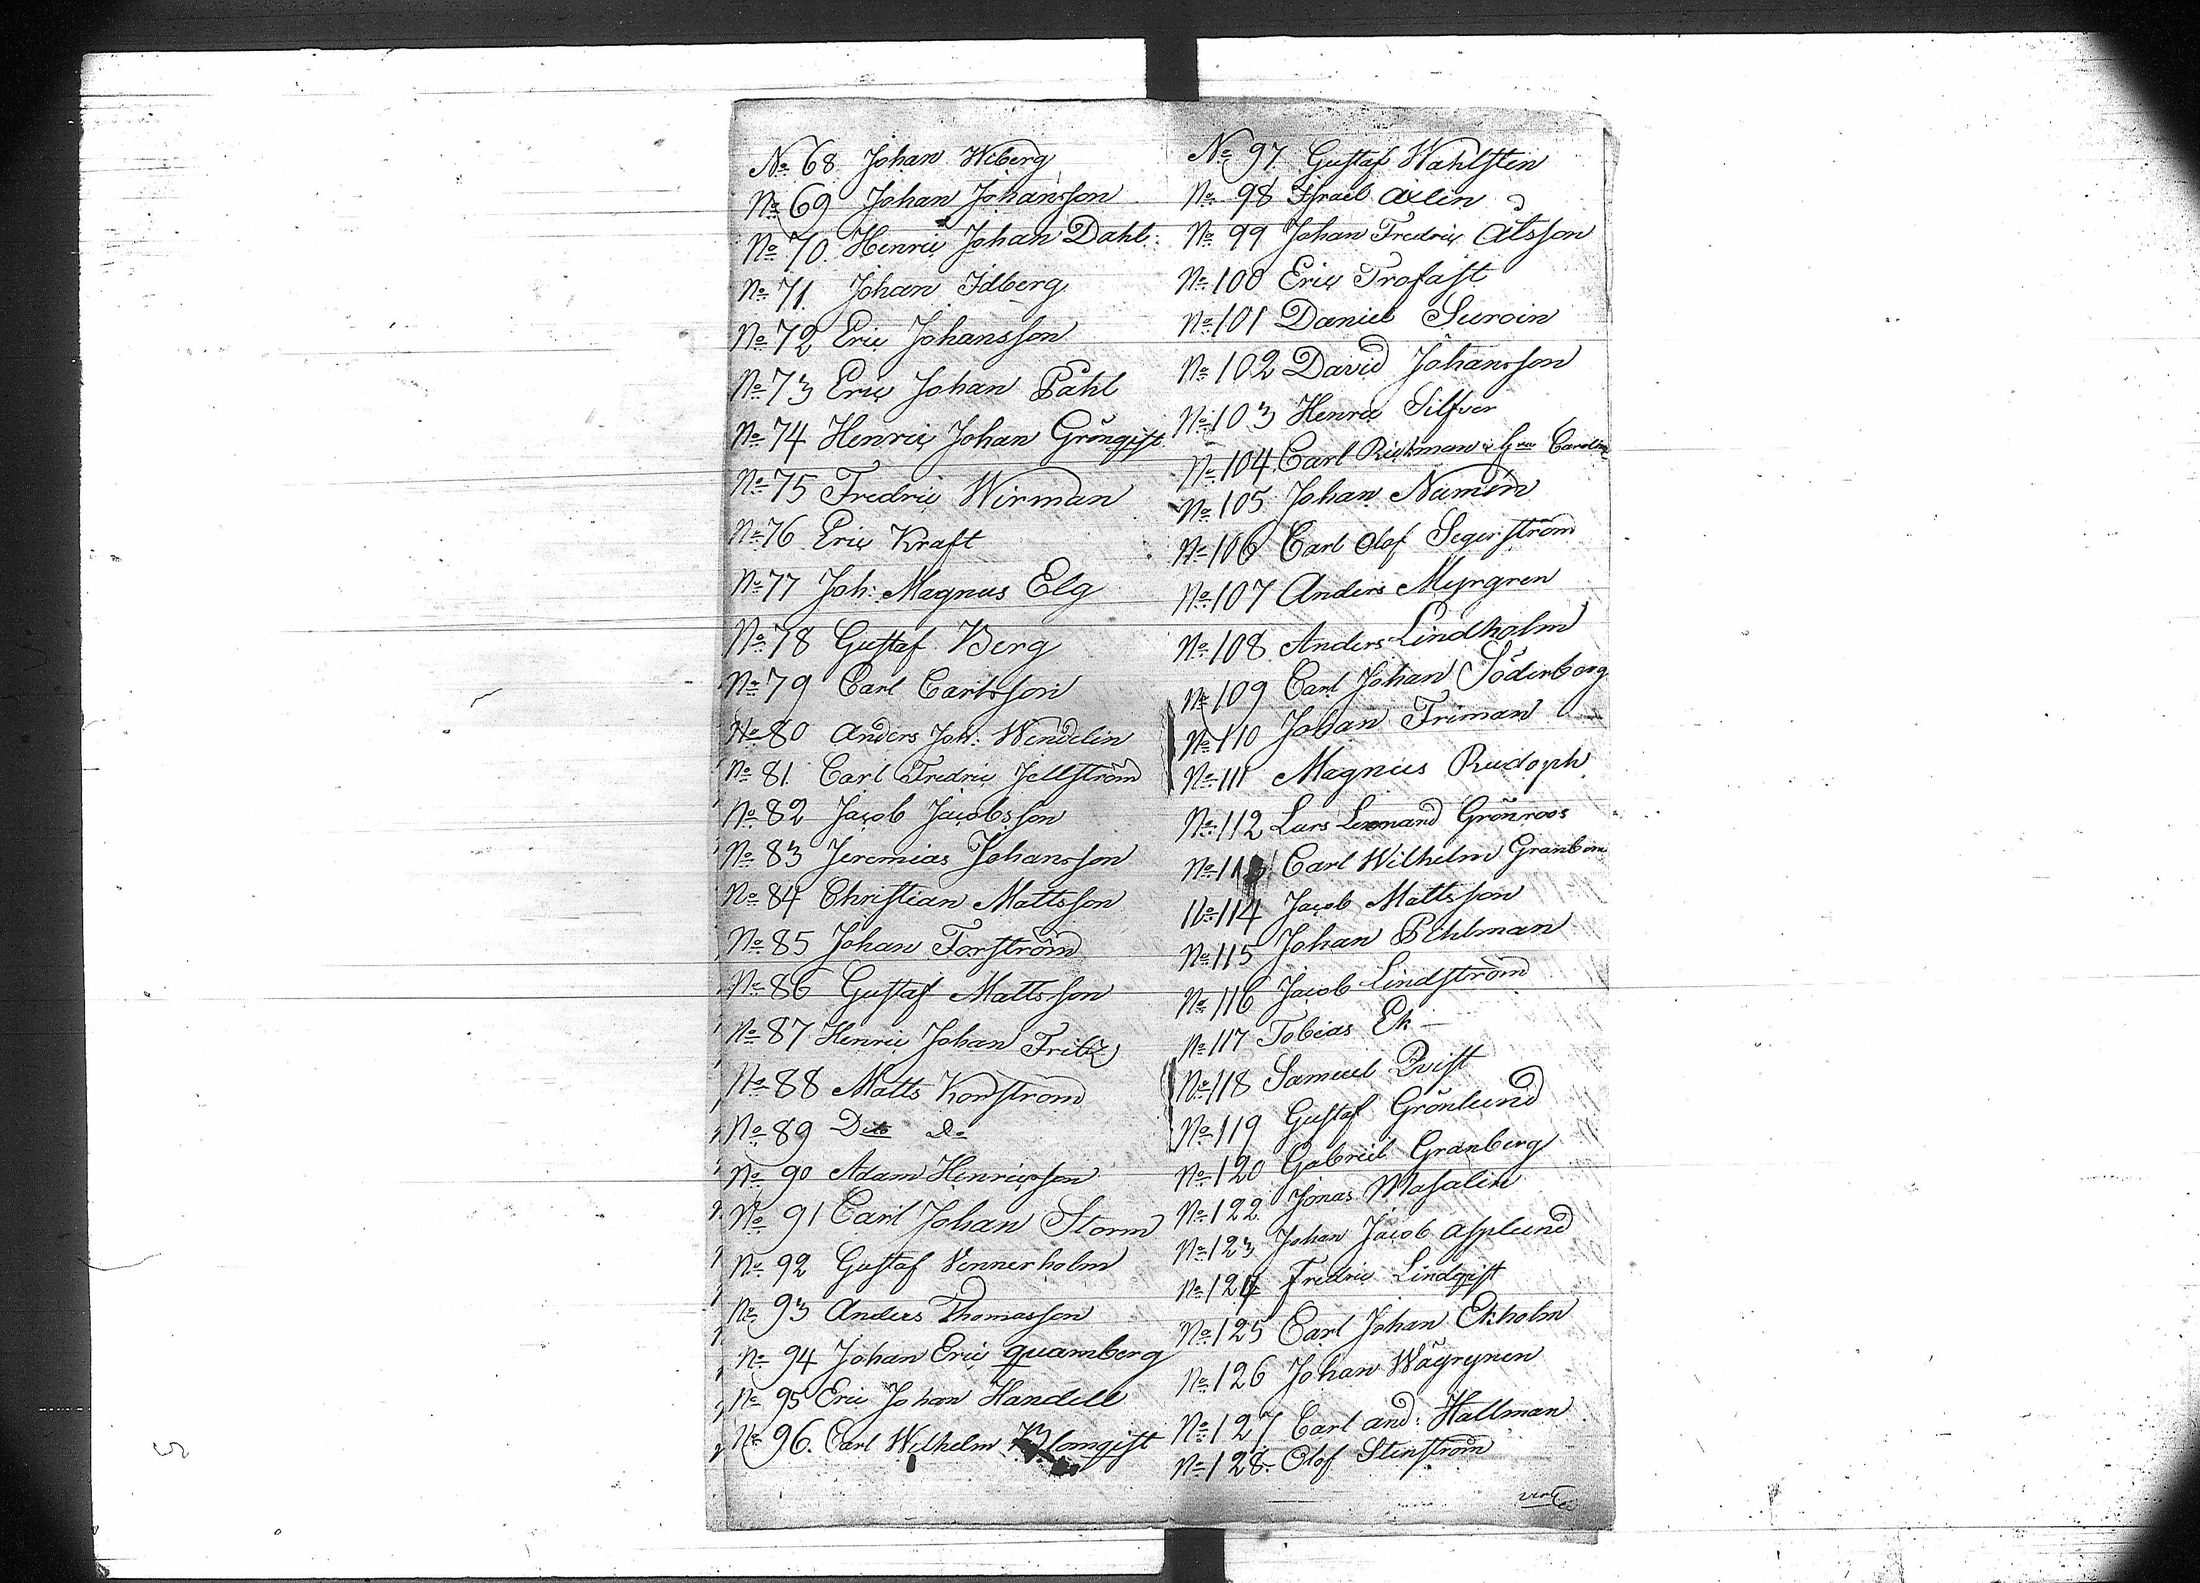 No 68 Johan Wiberg
No 69 Johan Johansson
No 70. Henric Johan Dahl:
No 71. Johan Idberg
No 72 Eric Johansson
No 73 Eric Johan Pahl
No 74 Henric Johan Grönqvist
No 75 Fredric Wirman
No 76 Eric Kraft
No 77 Joh: Magnus Elg
No 78 Gustaf Berg
No 79 Carl Carlsson
No 80 Anders Joh: Wendelin
No 81. Carl Fredric Jellström
No 82 Jacob Jacobsson
No 83 Jeremias Johansson
No 84 Christian Mattsson
No 85 Johan Forström
No 86 Gustaf Mattsson
No 87 Henric Johan Fritz
No 88 Matts Korström
No 89 Dito Do
No 90 Adam Henricsson
No 91 Carl Johan Storm
No 92 Gustaf Vennerholm
No 93 Anders Thomasson
No 94 Johan Eric Quamberg
No 95 Eric Johan Handell
No 96. Carl Wilhelm Blomqist
No 97. Gustaf Wahlsten
No 98 Israel Axlin
No 99 Johan Fredric Alsson
No 100 Eric Trofast
No 101 Daniel Suroin
No 102 David Johansson
No 103 Henric Silfver
No 104 Carl Rickman Carolin
No 105 Johan Namén
No 106 Carl Olof Segerström
No 107 Anders Myrgren
No 108. Anders Lindholm
No 109 Carl Johan Söderborg
No 110 Johan Friman
No 111 Magnus Rudoph
No 112 Lars Leonard Grönroos
No 113 Carl Wilhelm Granbom
No 114 Jacob Mattsson
No 115 Johan Pehlman
No 116 Jacob Lindström
No 117 Tobias Ek
No 118 Samuel Qvist
No 119 Gustaf Grönlund
No 120 Gabriel Granberg
No 122 Jonas Wasalin
No 123 Johan Jacob Asplund
No 124 Fredric Lindqist
No 125 Carl Johan Ekholm
No 126 Johan Wäyrynen
No 127 Carl And: Hallman
No 128. Olof Stenström